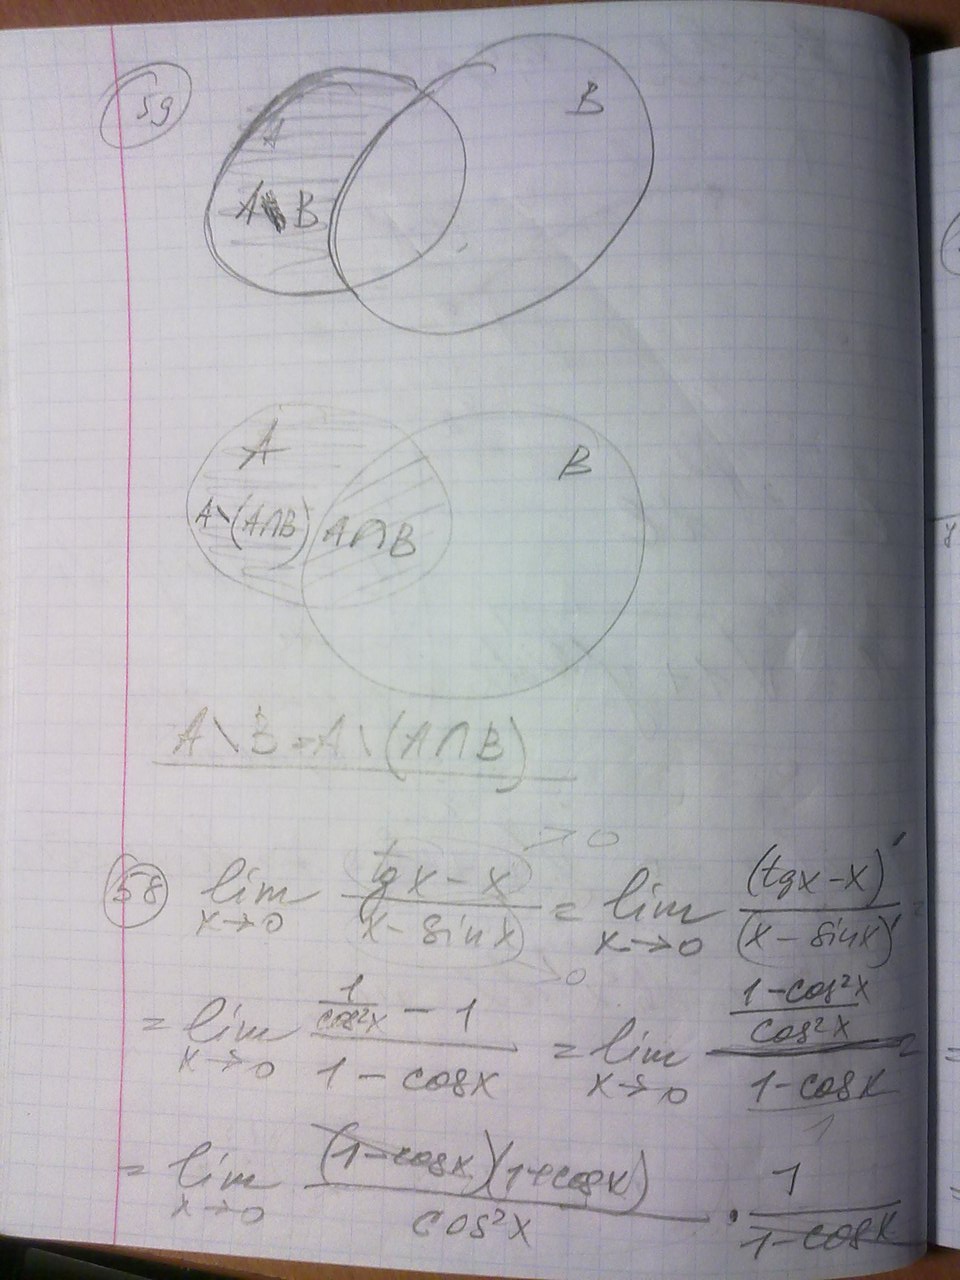 59
A
B
A \ B
A
B
A \ (A∩B) A∩B
A \ B = A \ (A∩B)
58 lim x→0 (tgx - x →0)/(x - sinx →0) = lim x→0 (tgx - x)'/(x - sinx)' =
= lim x→0 (1/cos²x - 1)/(1 - cosx) = lim x→0 ((1 - cos²x)/cos²x)/((1 - cosx)/1) =
= lim x→0 (1 - cosx)(1 + cosx)/cos²x · 1/(1 - cosx)